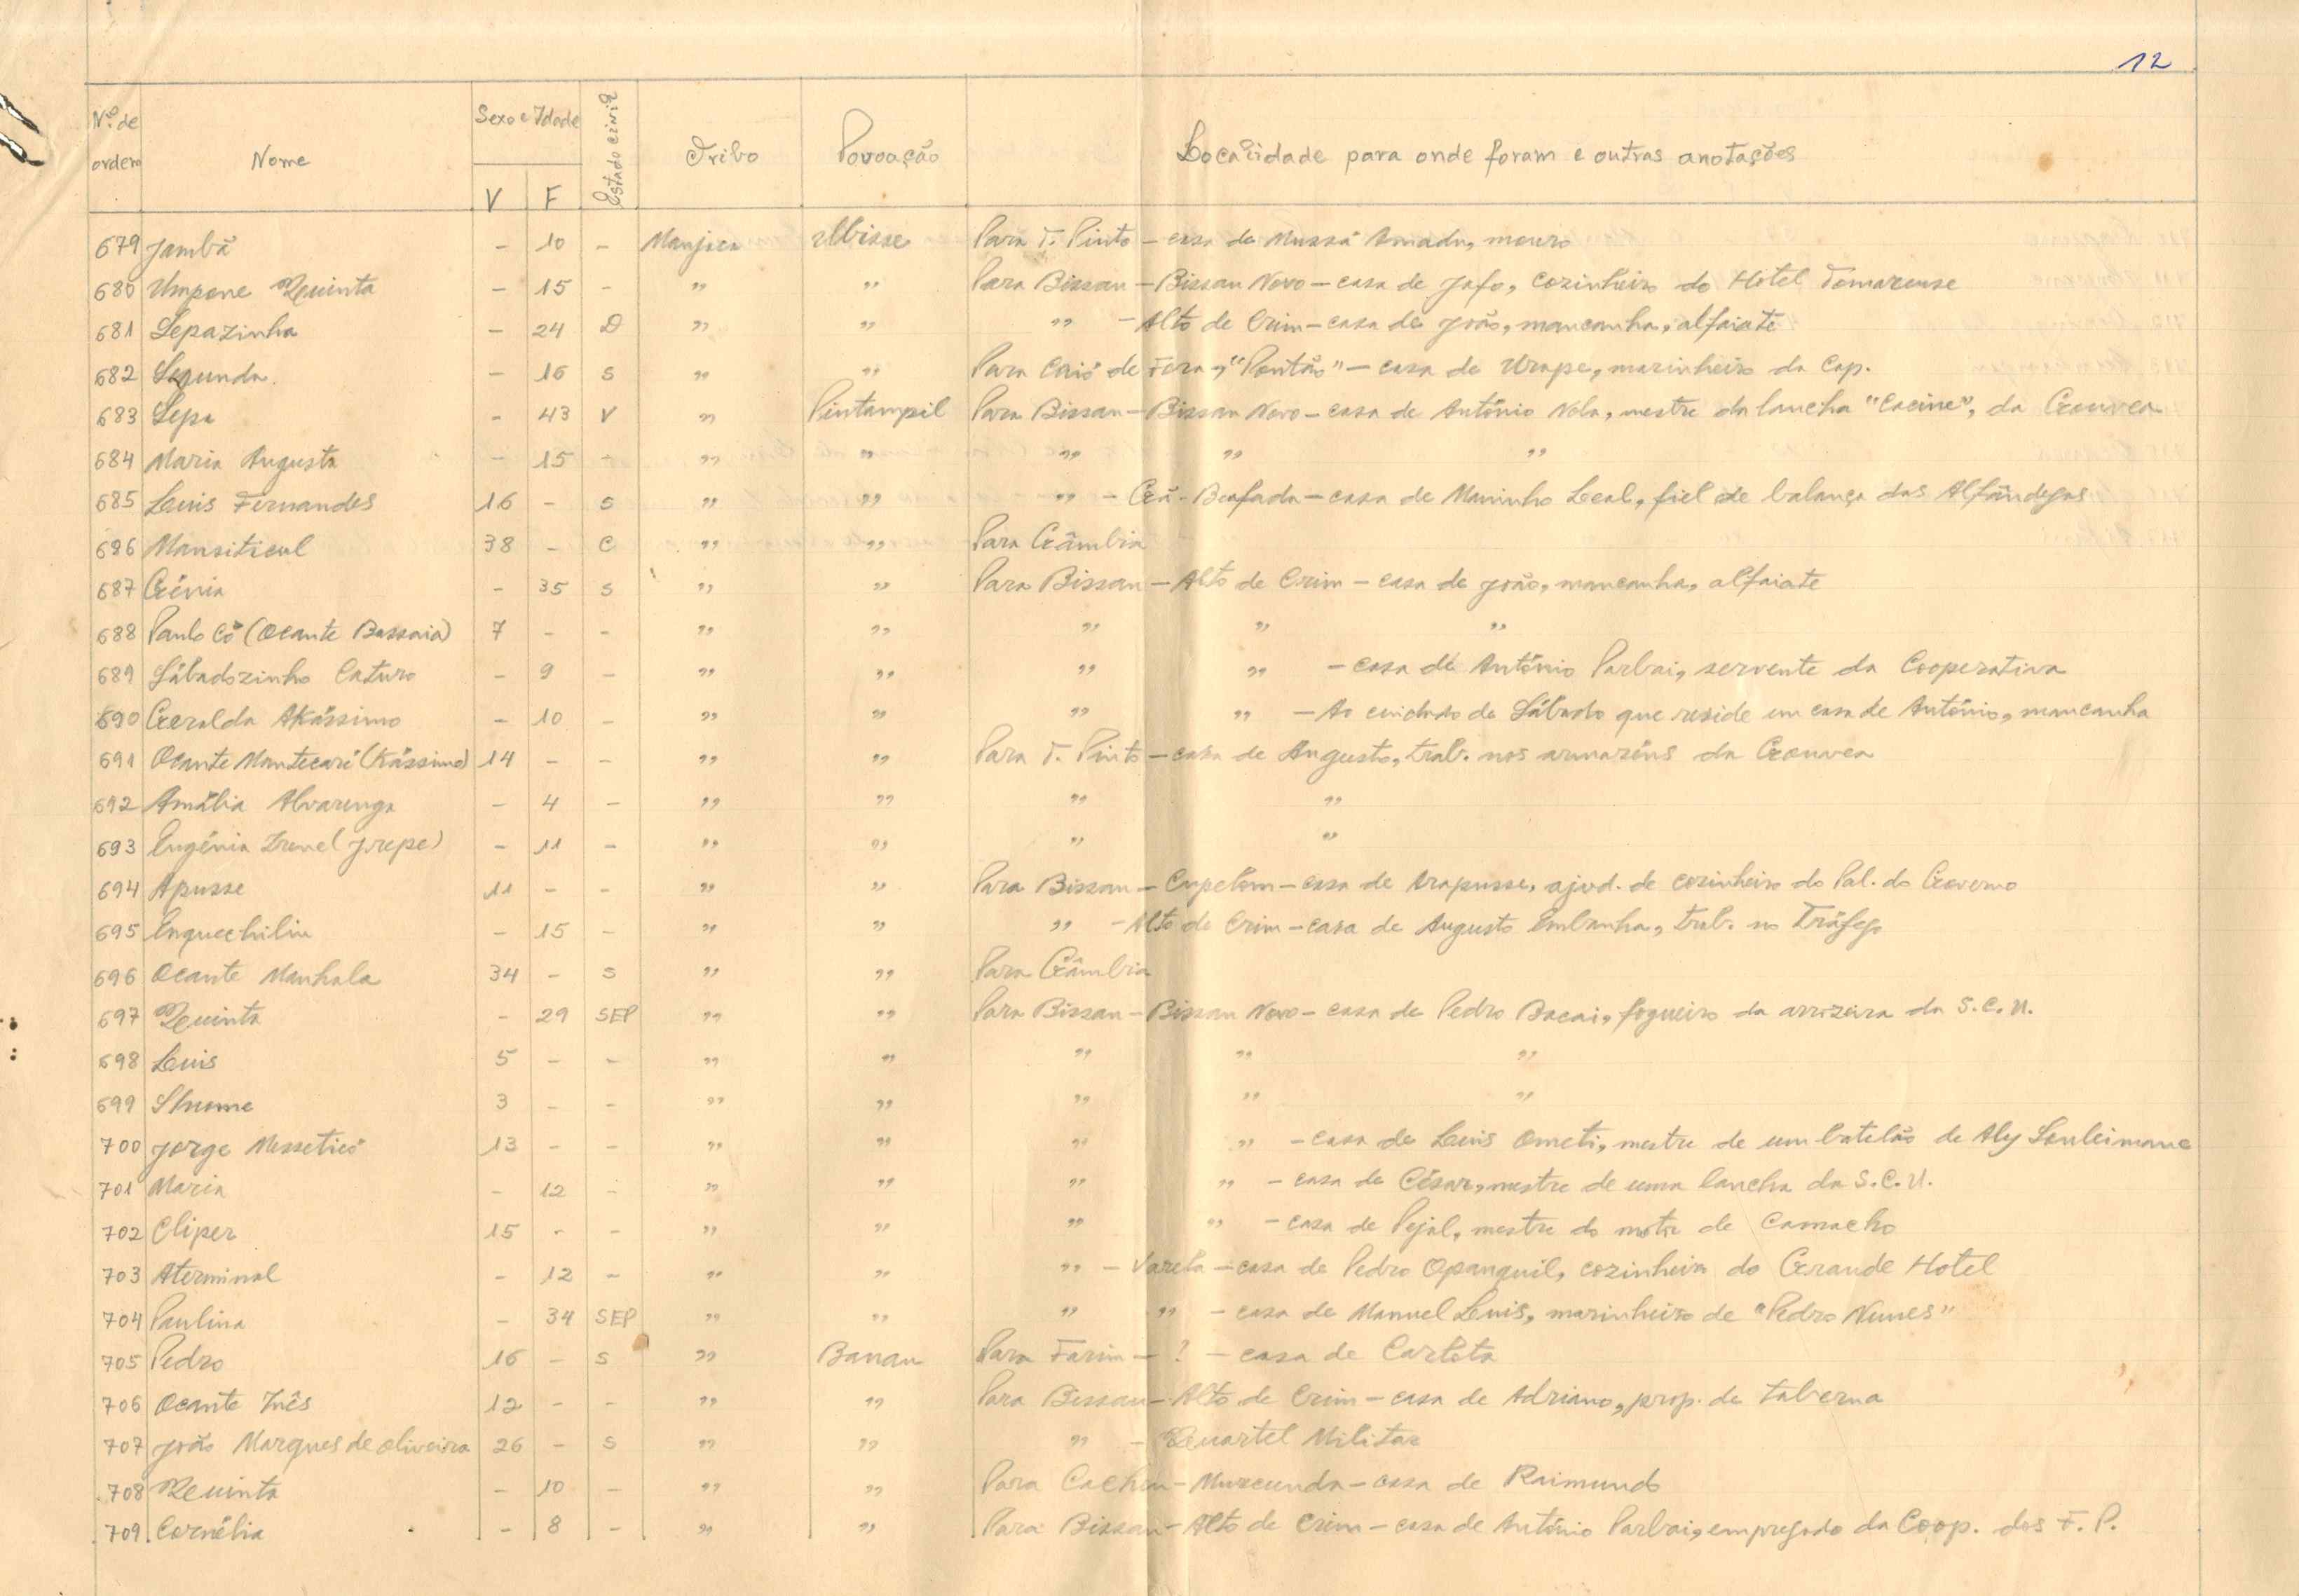 12
Nº de ordem Nome Sexo e Idade V F Estado civil Tribo Povoação Localidade para onde foram e outras anotações
679 Jambã - 10 - Manjaca Para T. Pinto - casa de Mussá Amadu, mouro
680 Umpane Quinta - 15 - " " Para Bissau - Bissau Novo - casa de Jafo, cozinheiro do Hotel Tomarense
681 Sepazinha - 24 D " " " - Alto de Crim - casa de João, mancanha, alfaiate
682 Segunda - 16 S " " Para Caió de Fora, "Pontão" - casa de Urape, marinheiro da Cap.
683 Sepa - 43 V " Pintampil Para Bissau - Bissau Novo - casa de António Nola, mestre da lancha "Cacine", da Gouvea
684 Maria Augusta - 15 - " " " " "
685 Luis Fernandes 16 - S " " " - Gã-Beafada - casa de Maninho Leal, fiel de balança das Alfândegas
686 Mansiticul 38 - C " " Para Gâmbia
687 Génia - 35 S " " Para Bissau - Alto de Crim - casa de João, mancanha, alfaiate
688 Paulo Có (Ocante Bassaia) 7 - - " " " " "
689 Sábadozinho Caturo - 9 - " " " " - casa de António Parbai, servente da Cooperativa
690 Geralda Akássimo - 10 - " " " " - Ao cuidado de Sábado que reside em casa de António, mancanha
691 Ocante Mantecaré (Kássimo) 14 - - " " Para T. Pinto - casa de Augusto, trab. nos armazéns da Gouvea
692 Amália Alvarenga - 4 - " " " "
693 Eugénia Irene (Jrepe) - 11 - " " " "
694 Apusse 11 - - " " Para Bissau - Cupelom - casa de Arapusse, ajud. de cozinheiro do Pal. do Governo
695 Enquechiliu - 15 - " " " - Alto de Crim - casa de Augusto Embanha, trab. no Tráfego
696 Ocante Manhala 34 - S " " Para Gâmbia
697 Quinta - 29 SEP " " Para Bissau - Bissau Novo - casa de Pedro Bacai, fogueiro da arrozeira da S.C.U.
698 Luis 5 - - " " " " "
699 3 - - " " " " "
700 Jorge Messeticó 13 - - " " " " - casa de Luis Ometi, mestre de um batelão de Aly Souleimane
701 Maria - 12 - " " " " - casa de César, mestre de uma lancha da S.C.U.
702 Cliper 15 - - " " " " - casa de Pejal, mestre do motor de Camacho
703 Aterminal - 12 - " " " - Varela - casa de Pedro Opanquil, cozinheiro do Grande Hotel
704 Paulina - 34 SEP " " " " - casa de Manuel Luis, marinheiro de "Pedro Nunes"
705 Pedro 16 - S " Banau Para Farim - ? - casa de Carlota
706 Ocante Inês 12 - - " " Para Bissau - Alto de Crim - casa de Adriano, prop. de taberna
707 João Marques de Oliveira 26 - S " " " - Quartel Militar
708 Quinta - 10 - " " Para Cacheu - Murcunda - casa de Raimundo
709 Cornélia - 8 - " " Para Bissau - Alto de Crim - casa de António Parbai, empregado da Coop. dos F.P.